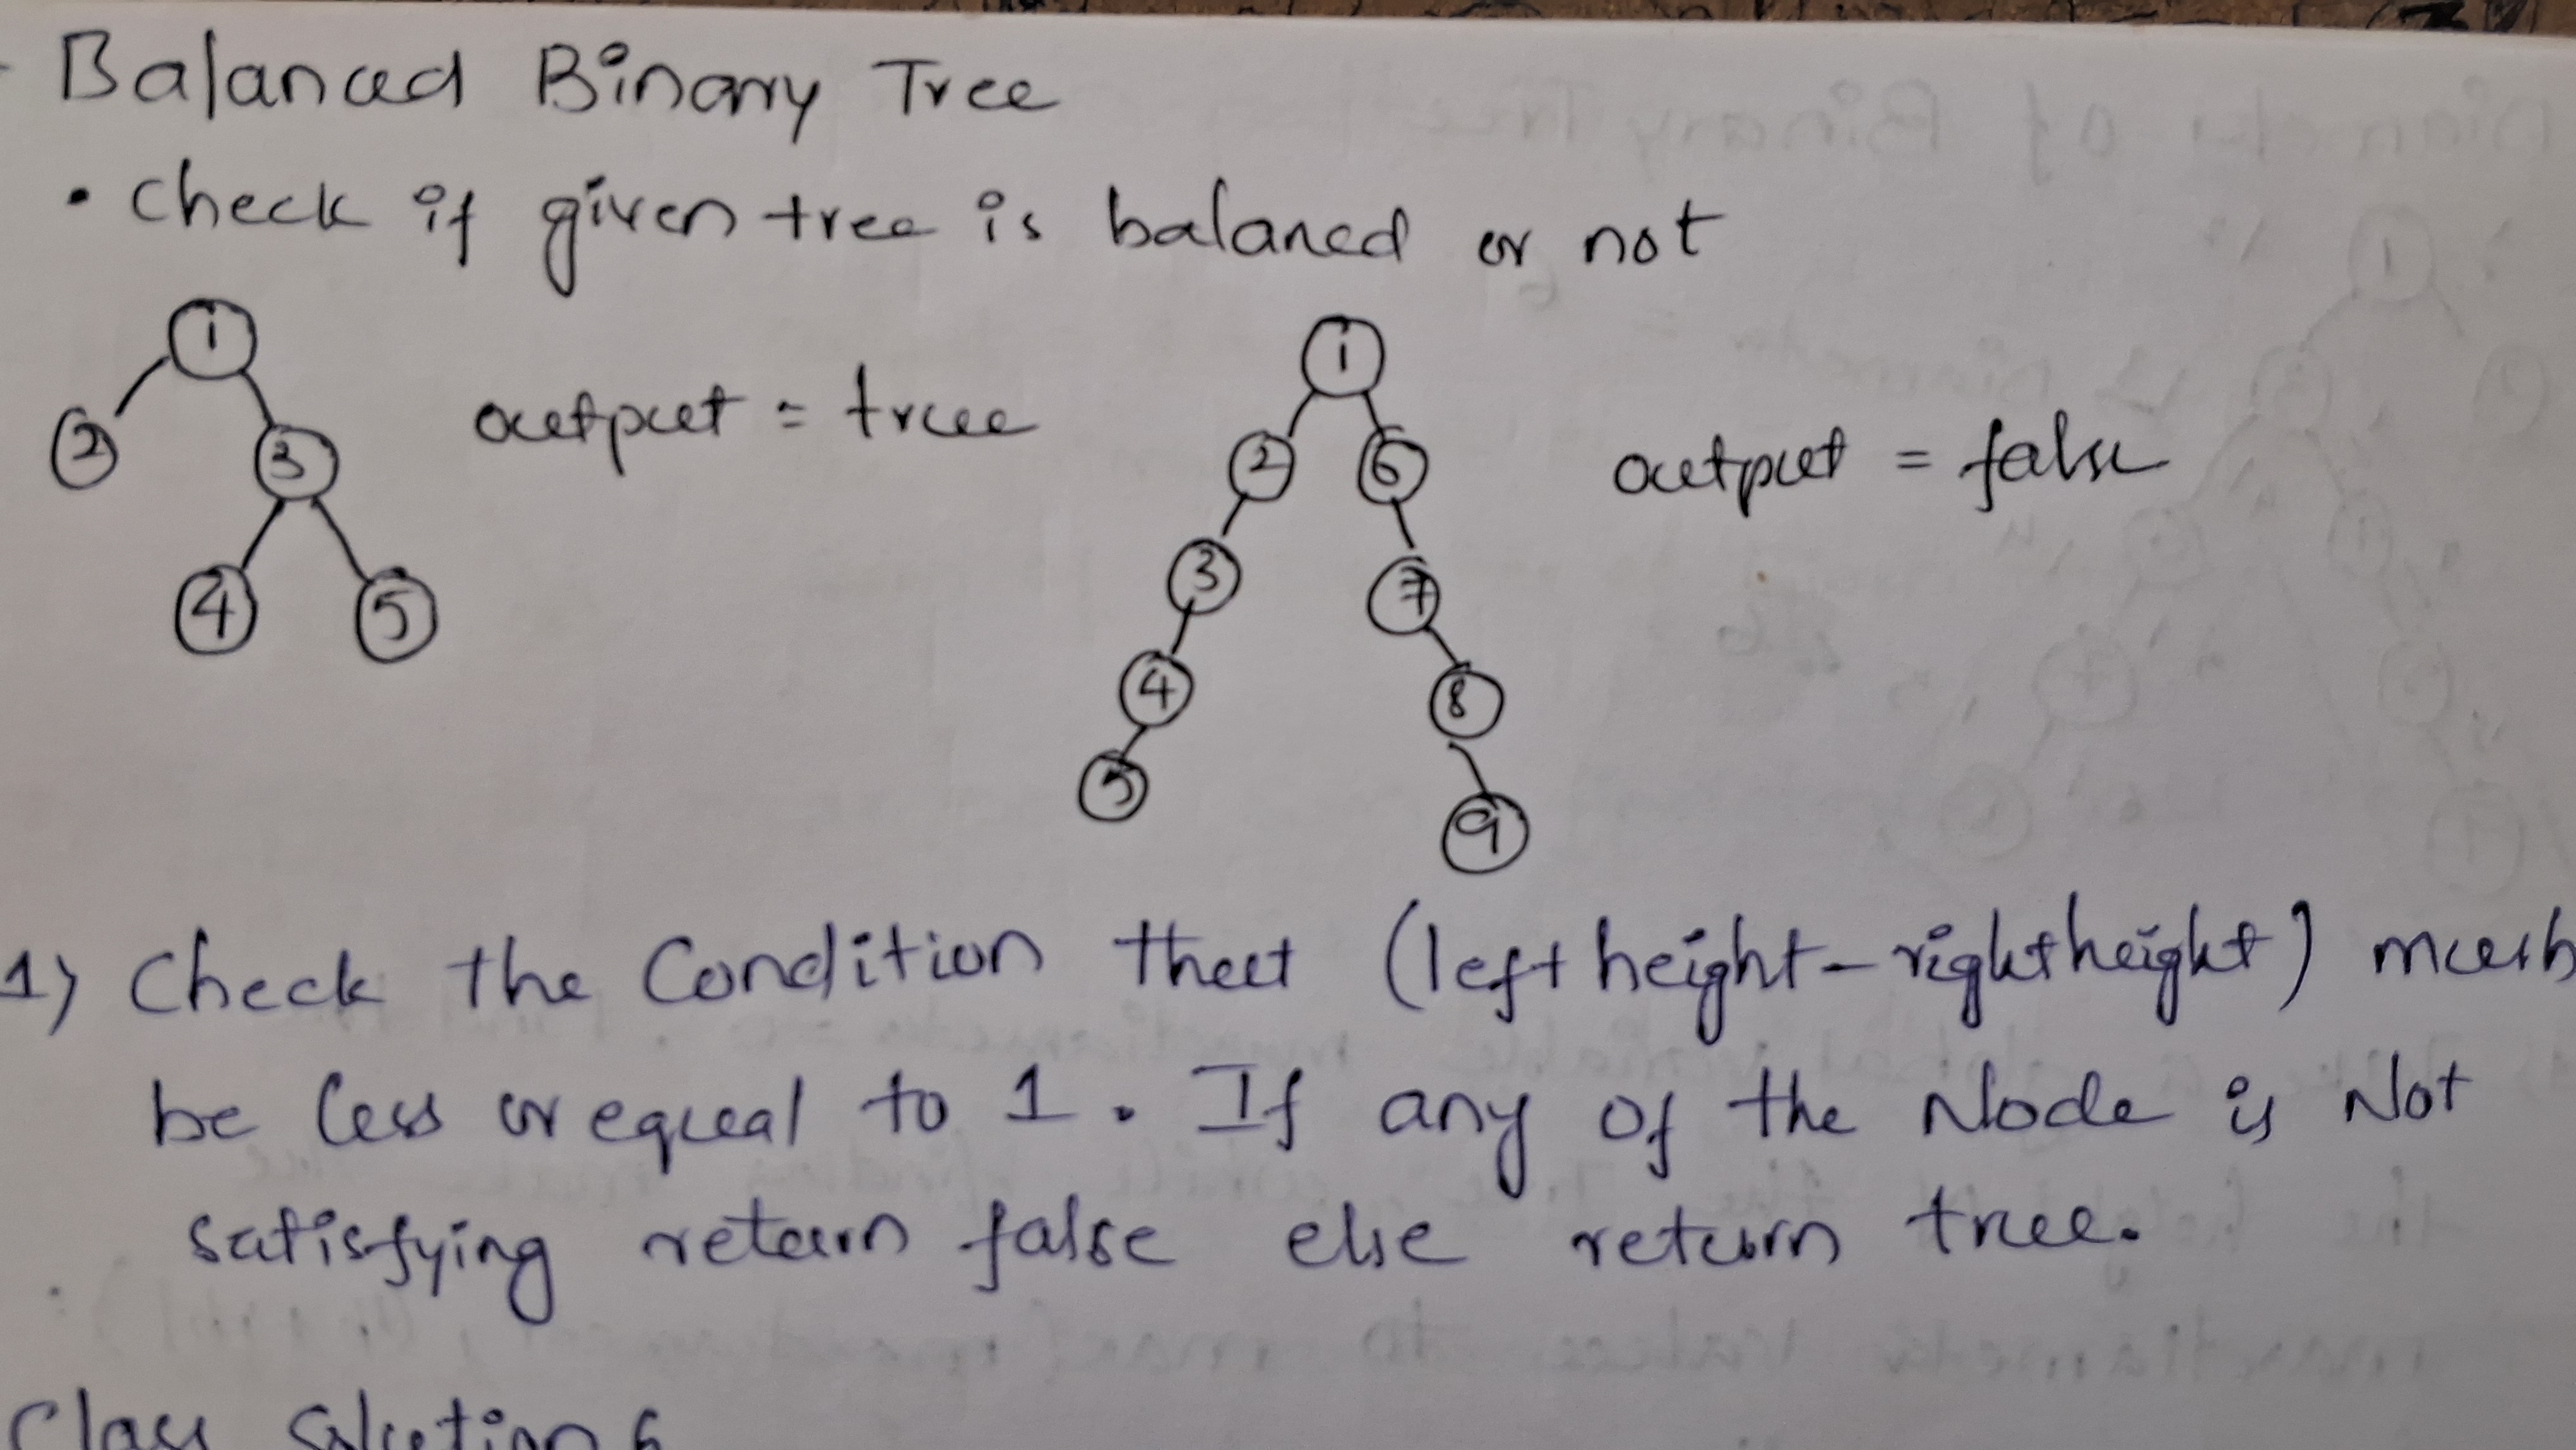 Balanced Binary Tree
• check if given tree is balaned or not
1 2 3 4 5
output = true
1 2 6 3 7 4 8 5 9
output = false
1) Check the Condition that (left height - right height) must
be less or equal to 1. If any of the Node is Not
satisfying return false else return true.
Class Solution